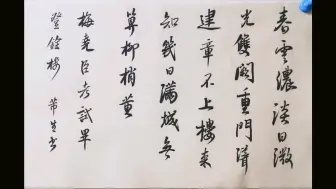 春雲濃淡日微
光雙闕重門聳
建章不上樓來
知幾日滿城無
算柳梢黃
梅堯臣考試畢
登銓樓